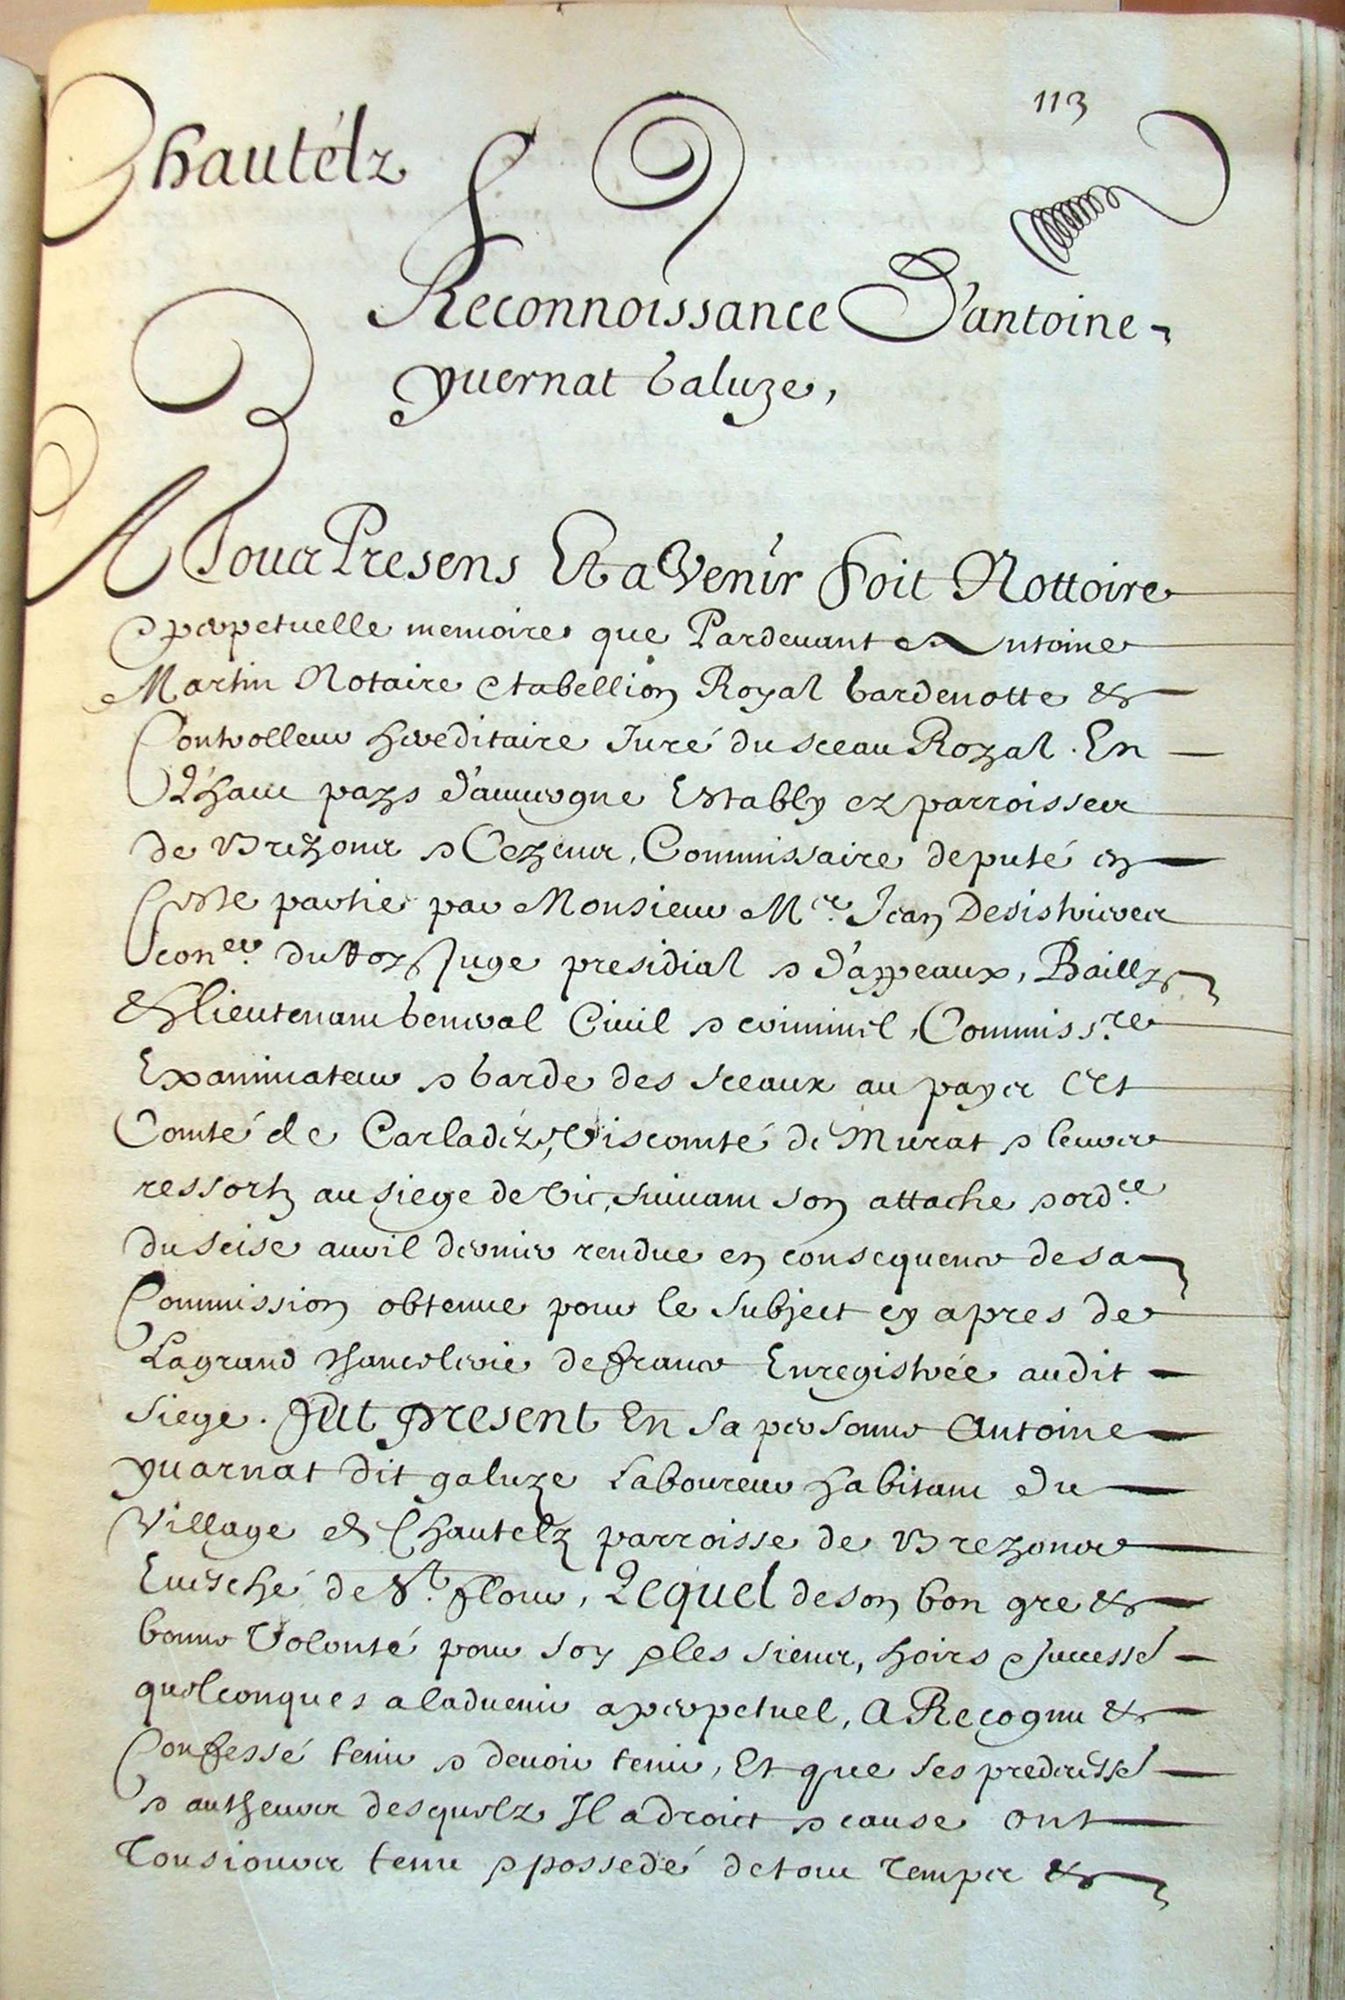 113
Chautélz
Reconnoissance D'antoine
yuernat Galuze,
A Tous Presens Et a Venir Soit Nottoire
& perpetuelle memoire que Pardeuant Antoine
Martin Notaire & tabellion Royal Gardenotte &
Controlleur hereditaire Juré du sceau Royal. En
L'haut pays d'auuergne Estably ez parroisses
de Brezons & Cezens, Commissaire deputé en
Ceste partie par Monsieur Mr. Jean Desistrieres
coner. du Roy Juge presidial & d'appeaux, Bailly
& Lieutenant General Ciuil & criminel, Commissre.
Examinateur & Garde des sceaux au pays Et
Comté de Carladéz, Viscomté de Murat & leurs
ressortz au siege de Vic, suiuant son attache & ordce.
du seise auril dernier rendue en consequence de sa
Commission obtenue pour le subject cy apres de
La grand chancelerie de france Enregistrée audit
siege. Fut Present En sa personne Antoine
yuarnat dit galuze Laboureur habitant du
Village de Chautelz parroisse de Brezons
Euesché de St. flour, Lequel de son bon gre &
bonne Volonté pour soy & les siens, hoirs & success.
quelconques a laduenir a perpetuel, A Recognu &
Confessé tenir & deuoir tenir, Et que ses predecess.
& autheurs desquelz Il a droict & cause ont
Tousiours tenu & possedé de tout Temps &